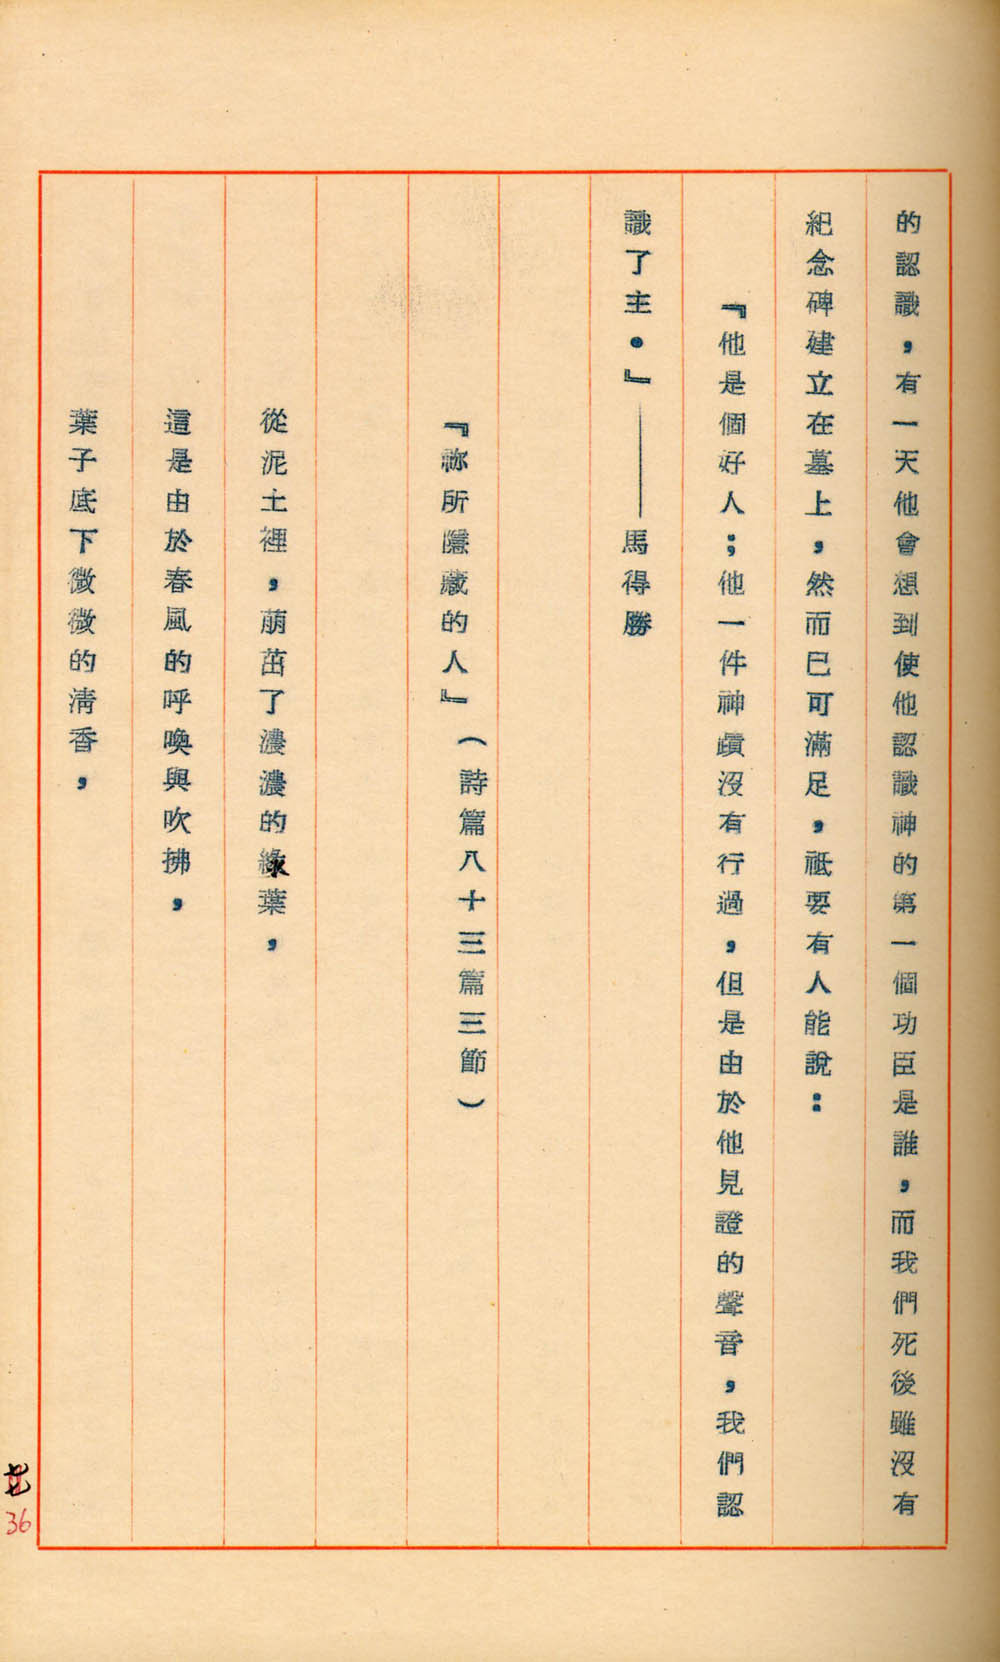 的認識，有一天他會想到使他認識神的第一個功臣是誰，而我們死後雖沒有
紀念碑建立在墓上，然而已可滿足，祗要有人能說：
『他是個好人；他一件神蹟沒有行過，但是由於他見證的聲音，我們認
識了主．』———馬得勝
『祢所隱藏的人』（詩篇八十三篇三節）
從泥土裡，萌茁了濃濃的綠葉，
這是由於春風的呼喚與吹拂，
葉子底下微微的清香，
36